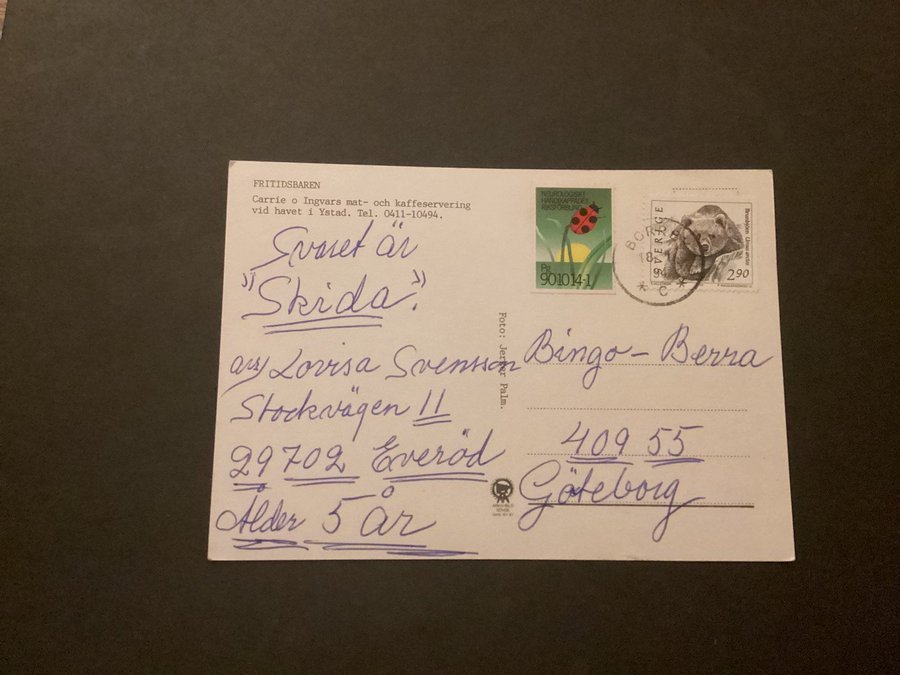 FRITIDSBAREN
Carrie o Ingvars mat- och kaffeservering
vid havet i Ystad. Tel. 0411-10494.
Svaret är
"Skida".
Lovisa Svensson
Stockvägen 11
29702 Everöd
Ålder 5 år
Foto: Jerker Palm.
NEUROLOGISKT
HANDIKAPPADES
RIKSFÖRBUND
Pg
901014-1
SVERIGE
Brunbjörn Ursus arctos
2.90
18
C
Bingo-Berra
409 55
Göteborg